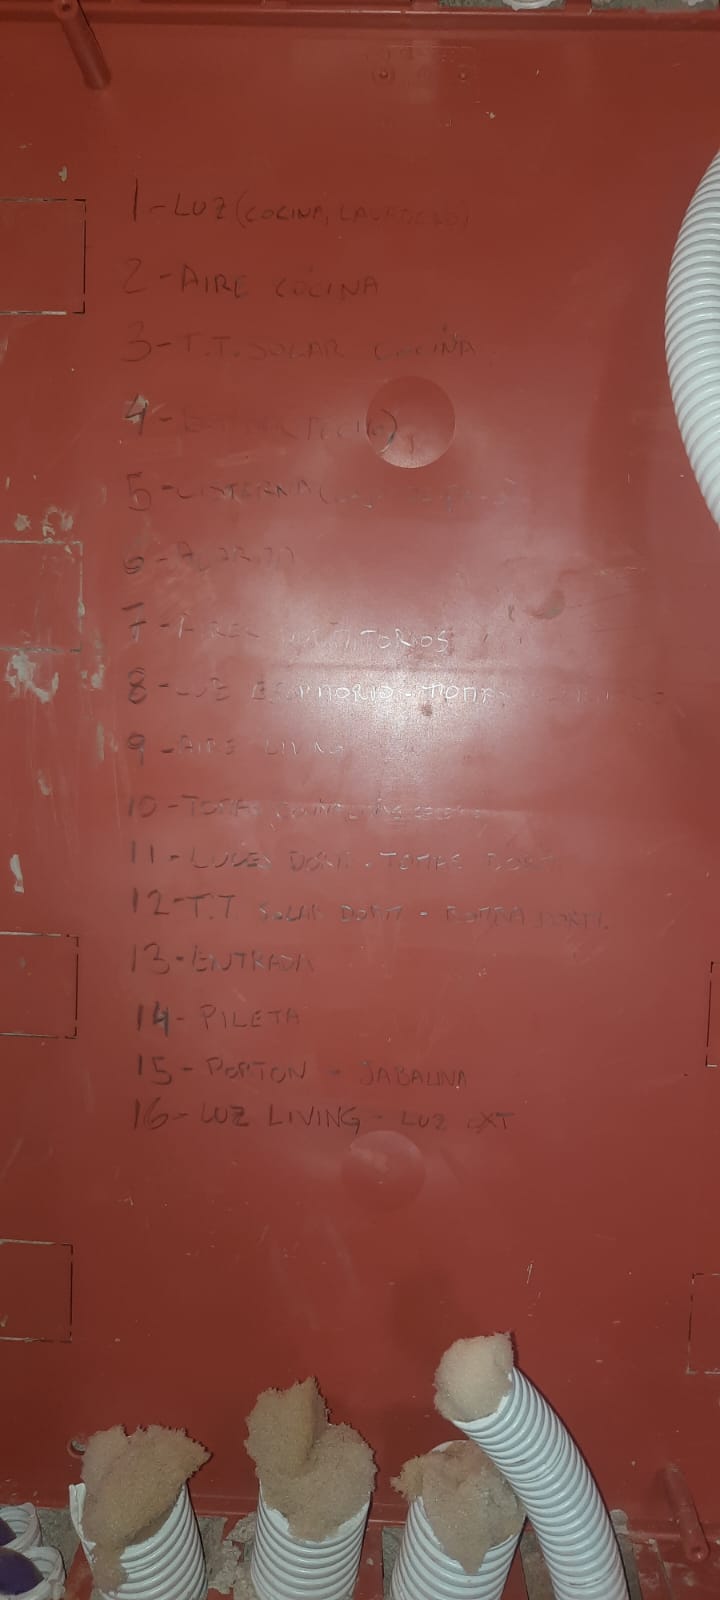 1-LUZ (COCINA, LAVADERO)
2-AIRE COCINA
3-T.T. SOLAR COCINA
4-
5-CISTERNA
6-
7-AIRES DORMITORIOS
8-LUZ ESCRITORIO - TOMA
9-AIRE LIVING
10-TOMAS
11-LUCES DORM - TOMAS DORM
12-T.T SOLAR DORM - BOMBA DORM.
13-ENTRADA
14-PILETA
15-PORTON - JABALINA
16-LUZ LIVING - LUZ EXT